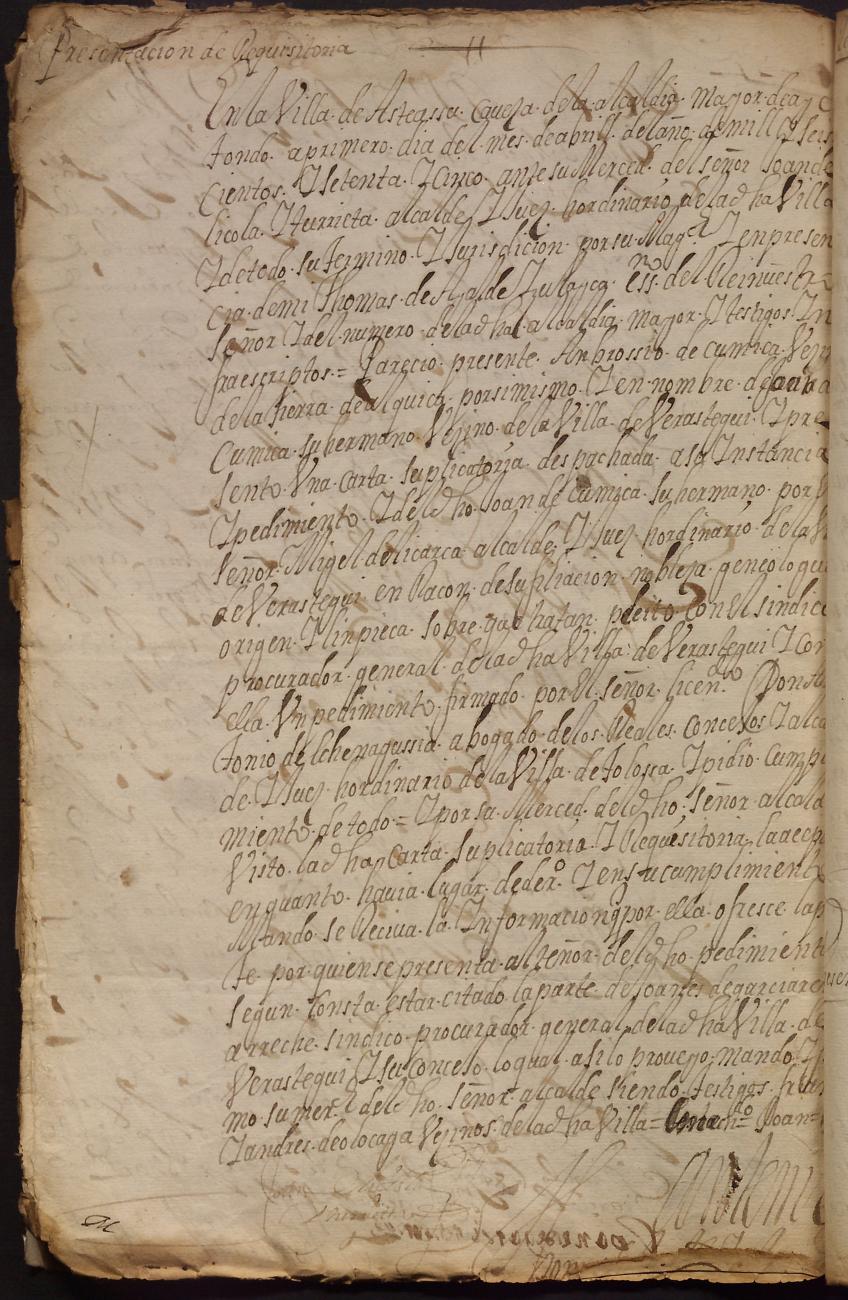 Presentacion de Requisitoria
En la Villa de Asteassu caveza de la alcaldia mayor de ay
tondo a primero dia del mes de abrill del año de mill y seis
cientos y setenta y cinco ante su merced del señor Joan de
licola Yturrieta alcalde y Juez hordinario de la dha Villa
y de todo su termino y Jurisdicion por su Magd y en presen
cia de mi Thomas de de essno del Rei nuestro
Señor y del numero de la dha alcaldia mayor y testigos In
fraescriptos = Parecio presente Ambrossio de cumica Vezi
de la tierra de alquica por si mismo y en nombre de
Cumica su hermano Vezino de la Villa de Verastegui y pre
sento Una carta suplicatoria despachada a su Instancia
y pedimiento y del dho Joan de Cumica su hermano por
Señor Migel de licarca alcalde y Juez hordinario de la Vi
de Verastegui en Racon de su filiacion nobleza geneologia
origen y limpieca sobre que tratan pleito con El sindico
procurador general de la dha Villa de Verastegui y con
ella Un pedimiento firmado por El señor licendo Don
tonio de Echenagussia abogado de los Reales Concexos y alca
de y Juez hordinario de la Villa de Tolossa y pidio cumpl
miento de todo = y por su Merced del dho Señor alcald
Visto la dha Carta suplicatoria y Requisitoria la
en quanto havia lugar de dero y en su cumplimiento
Mando se Reciva la Informacion q por ella ofresce la p
te por quien se presenta al tenor del dho pedimiento
segun Consta estar citado la parte de Joanes de garciare
arreche sindico procurador general de la dha Villa de
Verastegui y su Concejo lo qual asi lo proveyo mando y
mo su merd del dho señor alcalde siendo testigos
y andres de olocaga Vezinos de la dha Villa = Joan